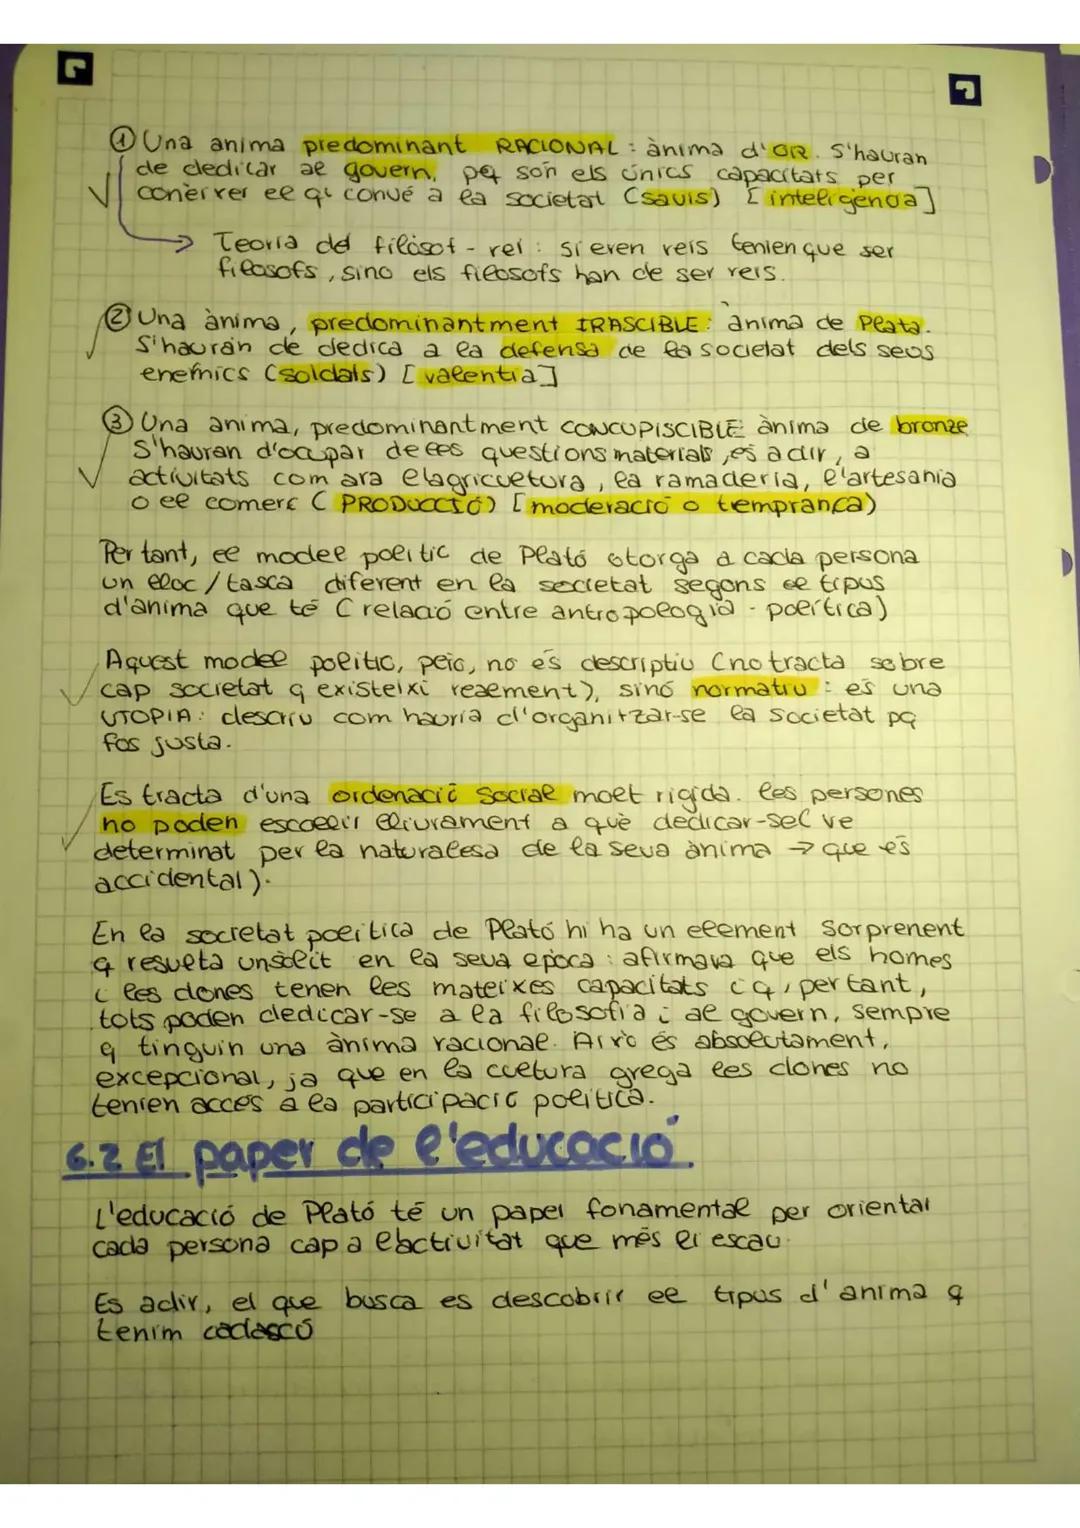 ① Una anima predominant RACIONAL: ànima d'OR. S'hauran
de dedicar al govern, pq són els únics capacitats per
conèixer el q convé a la societat (savis) [inteligència]
→ Teoria del filòsof-rei: si eren reis tenien que ser
filosofs, sino els filosofs han de ser reis.
② Una ànima, predominantment IRASCIBLE: ànima de Plata.
S'hauran de dedica a la defensa de la societat dels seus
enemics (soldats) [valentia]
③ Una anima, predominantment CONCUPISCIBLE: ànima de bronze
S'hauran d'ocupar de les questions materials, és a dir, a
activitats com ara el agricultura, la ramaderia, l'artesania
o el comerç (PRODUCCIÓ) [moderació o temprança)
Per tant, el model polític de Plató otorga a cada persona
un lloc / tasca diferent en la societat segons el tipus
d'ànima que té (relació entre antropologia - política)
Aquest model polític, però, no és descriptiu (no tracta sobre
cap societat q existeixi realment), sinó normatiu: és una
UTOPIA: descriu com hauria d'organitzar-se la societat pq
fos justa.
Es tracta d'una ordenació social molt rígida. les persones
no poden escollir lliurament a què dedicar-se( ve
determinat per la naturalesa de la seva ànima → que és
accidental).
En la societat política de Plató hi ha un element sorprenent
q resulta insòlit en la seva època: afirmava que els homes
i les dones tenen les mateixes capacitats i q, per tant,
tots poden dedicar-se a la filosofia i al govern, sempre
q tinguin una ànima racional. Això és absolutament,
excepcional, ja que en la cultura grega les dones no
tenien accés a la participació política.
6.2 El paper de l'educació.
L'educació de Plató té un paper fonamental per orientar
cada persona cap a l'activitat que més li escau.
Es a dir, el que busca es descobrir el tipus d'anima q
tenim cadascó